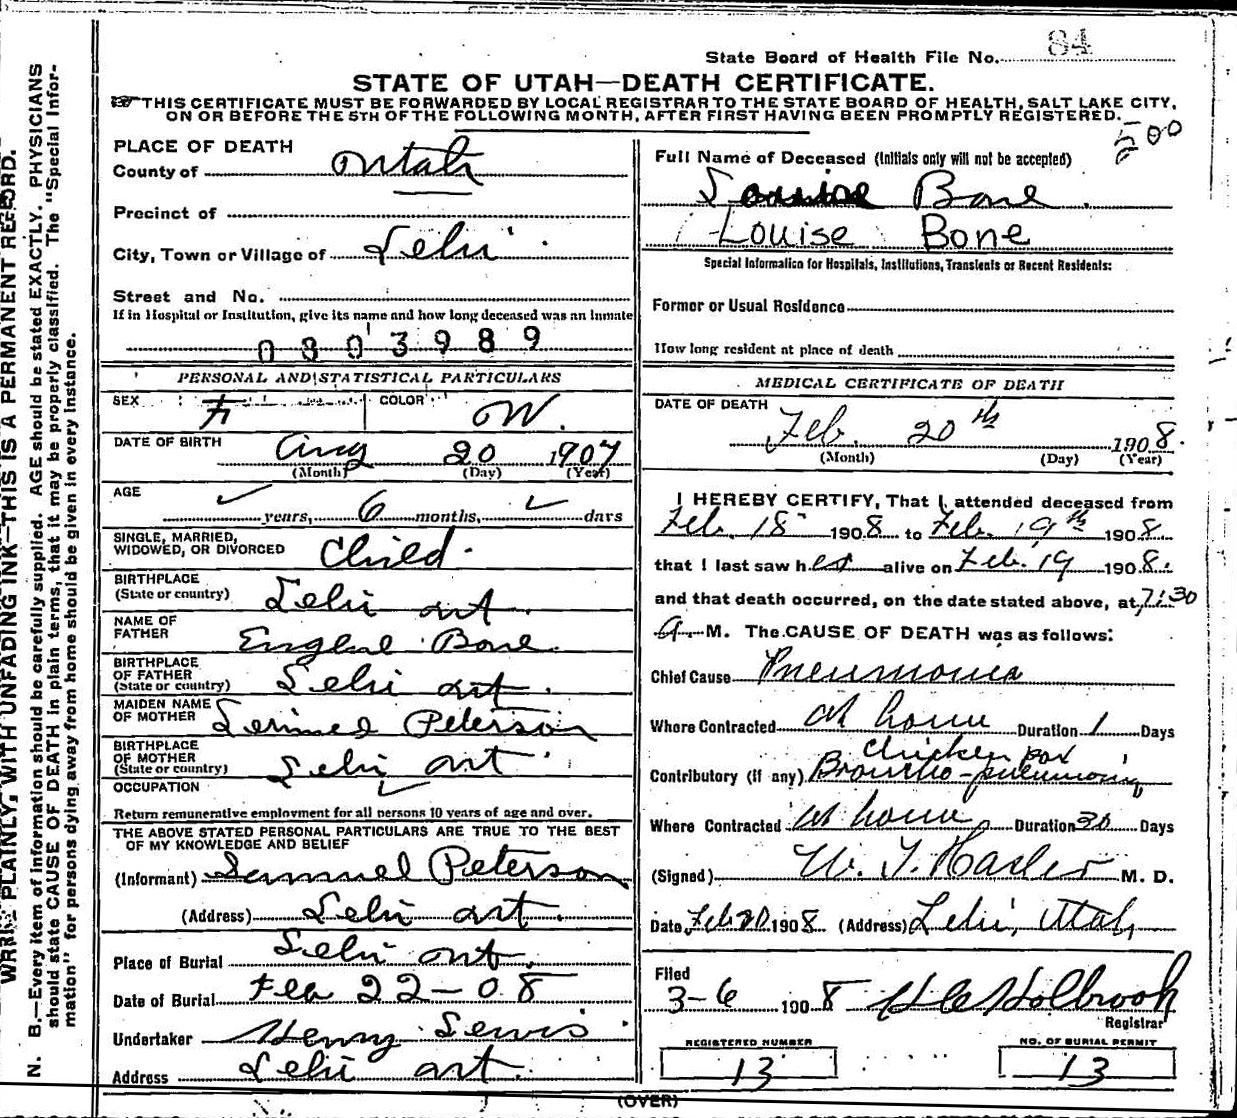 State Board of Health File No. 84
STATE OF UTAH—DEATH CERTIFICATE.
THIS CERTIFICATE MUST BE FORWARDED BY LOCAL REGISTRAR TO THE STATE BOARD OF HEALTH, SALT LAKE CITY,
ON OR BEFORE THE 5TH OF THE FOLLOWING MONTH, AFTER FIRST HAVING BEEN PROMPTLY REGISTERED.
500
WRITE PLAINLY, WITH UNFADING INK—THIS IS A PERMANENT RECORD.
N. B.—Every item of information should be carefully supplied. AGE should be stated EXACTLY. PHYSICIANS
should state CAUSE OF DEATH in plain terms, that it may be properly classified. The "Special Infor-
mation" for persons dying away from home should be given in every instance.
PLACE OF DEATH
County of Utah
Precinct of
City, Town or Village of Lehi
Street and No.
If in Hospital or Institution, give its name and how long deceased was an inmate
0803989
PERSONAL AND STATISTICAL PARTICULARS
SEX F COLOR W.
DATE OF BIRTH Aug 20 1907
(Month) (Day) (Year)
AGE
years, 6 months, days
SINGLE, MARRIED,
WIDOWED, OR DIVORCED Child.
BIRTHPLACE
(State or country) Lehi Ut.
NAME OF
FATHER Bone.
BIRTHPLACE
OF FATHER
(State or country) Lehi Ut.
MAIDEN NAME
OF MOTHER Peterson
BIRTHPLACE
OF MOTHER
(State or country) Lehi Ut
OCCUPATION
Return remunerative employment for all persons 10 years of age and over.
THE ABOVE STATED PERSONAL PARTICULARS ARE TRUE TO THE BEST
OF MY KNOWLEDGE AND BELIEF
(Informant) Samuel Peterson
(Address) Lehi Ut.
Place of Burial Lehi Ut.
Date of Burial Feb 22-08
Undertaker Henry Lewis
Address Lehi Ut.
Full Name of Deceased (Initials only will not be accepted)
Louise Bone.
Louise Bone
Special Information for Hospitals, Institutions, Transients or Recent Residents:
Former or Usual Residence
How long resident at place of death
MEDICAL CERTIFICATE OF DEATH
DATE OF DEATH
Feb. 20th 1908.
(Month) (Day) (Year)
I HEREBY CERTIFY, That I attended deceased from
Feb. 18 1908 to Feb. 19th 1908
that I last saw her alive on Feb. 19 1908.
and that death occurred, on the date stated above, at 7:30
A M. The CAUSE OF DEATH was as follows:
Chief Cause Pneumonia
Where Contracted at home Duration 1 Days
Chicken pox
Contributory (if any) Broncho-pneumonia
Where Contracted at home Duration 30 Days
(Signed) M. D.
Date Feb 20 1908 (Address) Lehi, Utah,
Filed
3-6 1908 Holbrook
Registrar
REGISTERED NUMBER
13
NO. OF BURIAL PERMIT
13
(OVER)